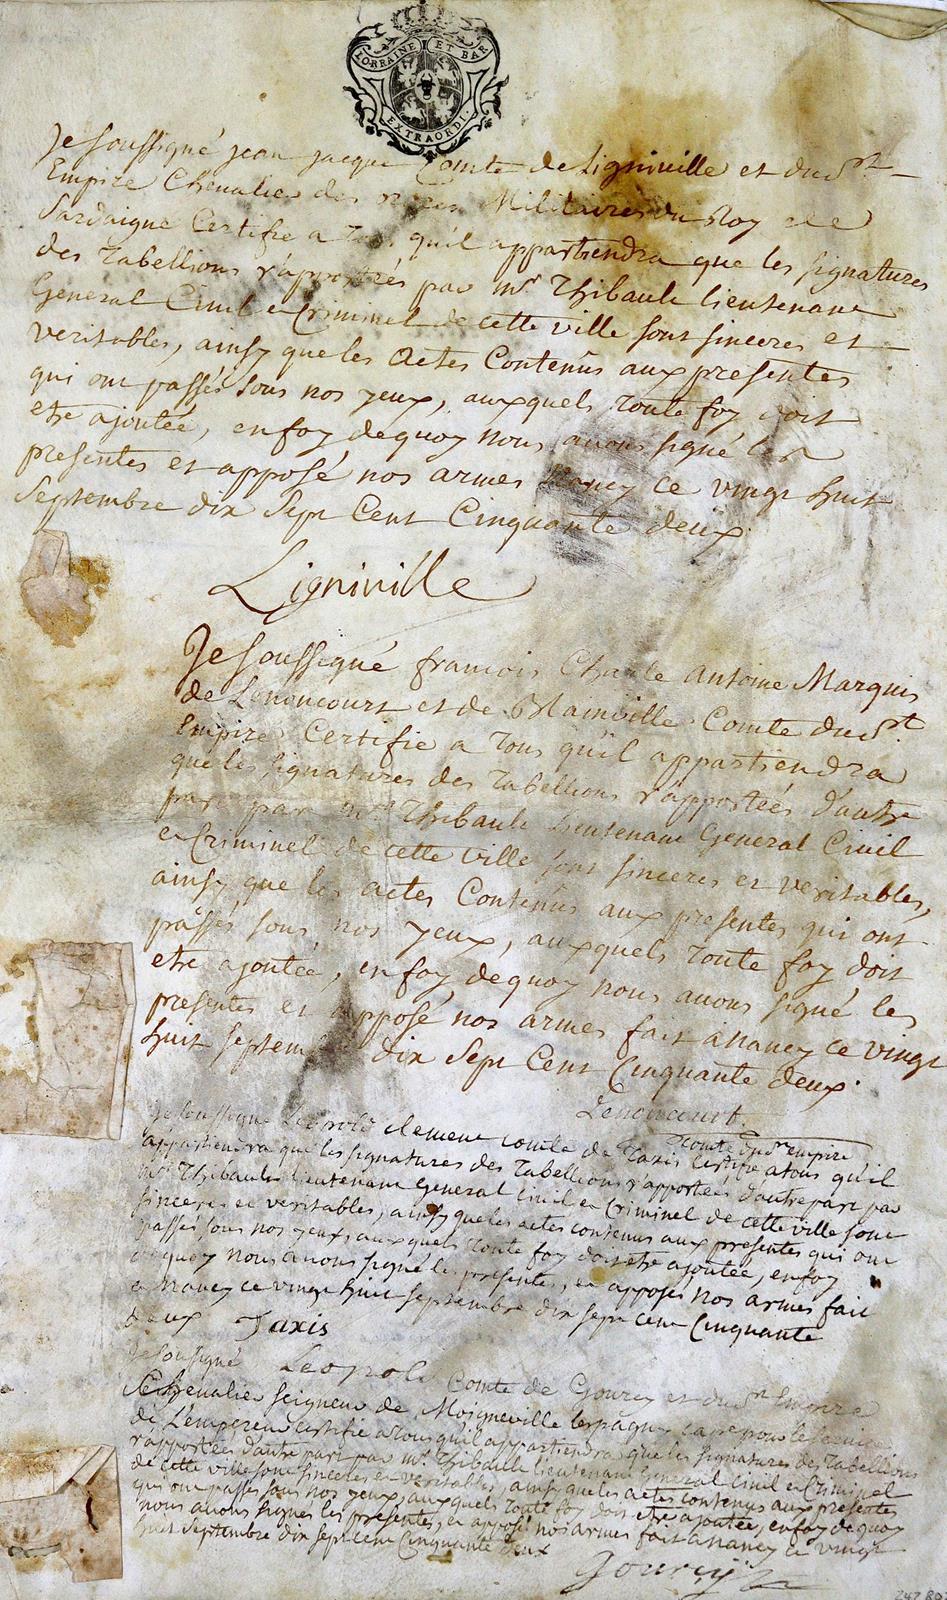 LORRAINE ET BAR
EXTRAORDI.
Je soussigné jean jacque Comte de Ligniville et du St
Empire Chevalier des ordres Militaires du Roy de
Sardaigne Certifie a Tous qu'il appartiendra que les signatures
des Tabellions rapportés par mr Thibault lieutenant
General Civil et Criminel de cette ville sont sinceres et
veritables, ainsy que les Actes Contenus aux presentes
qui ont passés sous nos yeux, auxquels toute foy doit
etre ajoutée, en foy dequoy nous avons signé les
presentes et apposé nos armes Nancy ce vingt huit
Septembre dix Sept Cent Cinquante deux
Ligniville
Je soussigné francois Charle Antoine Marquis
de Lenoncourt et de Blainville Comte du St
Empire Certifie a Tous qu'il appartiendra
que les signatures des Tabellions rapportées d'autre
part par Mr Thibault Lieutenant General Civil
et Criminel de cette ville sont sinceres et veritables,
ainsy que les actes Contenus aux presentes qui ont
passés sous nos yeux, auxquels toute foy doit
etre ajoutée, en foy dequoy nous avons signé les
presentes et apposé nos armes fait a Nancy ce vingt
huit septembre dix Sept Cent Cinquante deux.
Lenoncourt
Comte du St empire
Je soussigné Léopold clement comte de Taxis Certifie a tous qu'il
appartiendra que les signatures des Tabellions rapportées d'autre part par
Mr Thibault Lieutenant General Civil et Criminel de cette ville sont
sinceres et veritables, ainsy que les actes contenus aux presentes qui ont
passés sous nos yeux, auxquels toute foy doit etre ajoutée, en foy
dequoy nous avons signé les presentes, et apposés nos armes fait
a Nancy ce vingt huit septembre dix sept cent Cinquante
deux Taxis
Je soussigné Leopold Comte de Gourcy et du St Empire
Chevalier seigneur de Moigneville
de L'empereur certifie a tous qu'il appartiendra que les signatures des Tabellions
rapportées d'autre part par Mr Thibault lieutenant General Civil et Criminel
de cette ville sont sinceres et veritables, ainsy que les actes contenus aux presentes
qui ont passés sous nos yeux, auxquels toute foy doit etre ajoutée, en foy de quoy
nous avons signés les presentes, et apposé nos armes fait a Nancy ce vingt
huit Septembre dix sept cent Cinquante deux
Gourcÿ